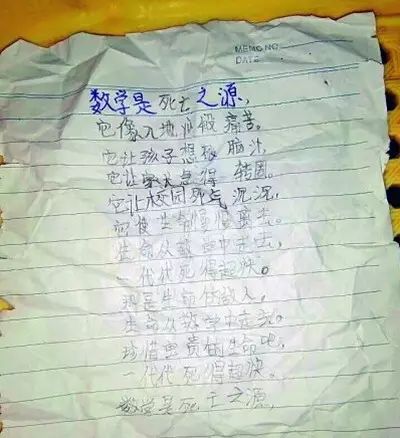 MEMO NO.
DATE
数学是死亡之源,
它像入地狱般痛苦。
它让孩子想破脑汁,
它让家长急得转圈。
它让校园死气沉沉,
它使生命慢慢离去。
生命从数学中走去,
一代代死得超快。
那是生命的敌人,
生命从数学中走去。
珍惜宝贵的生命吧,
一代代死得超快。
数学是死亡之源,